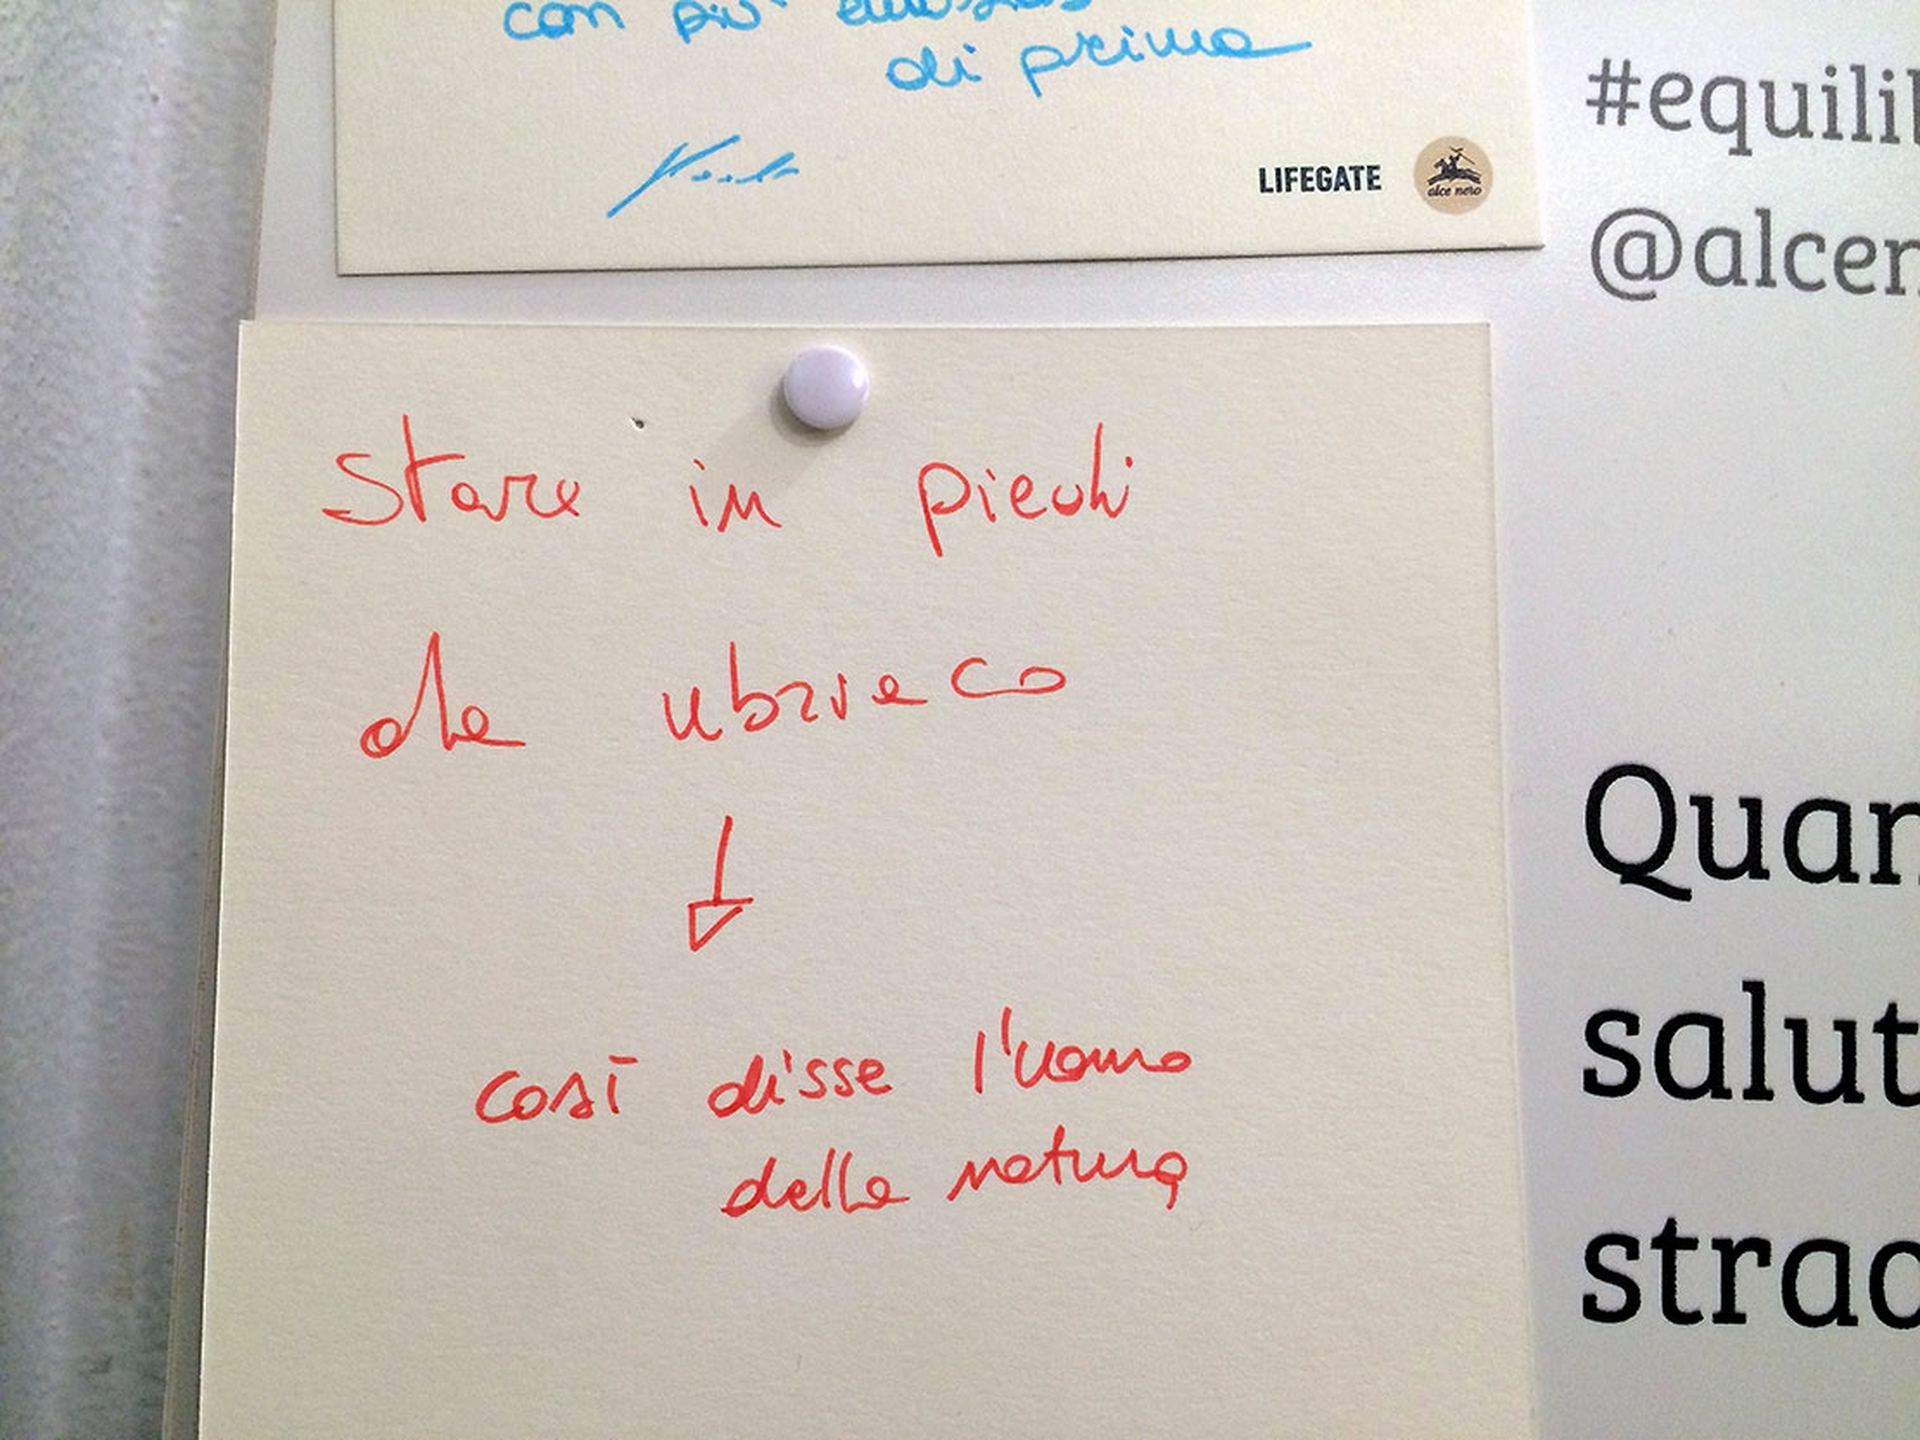 con più
di prima
LIFEGATE
alce nero
#equilib
@alcen
Stare in piedi
da ubriaco
così disse l'uomo
della natura
Quan
salut
strao